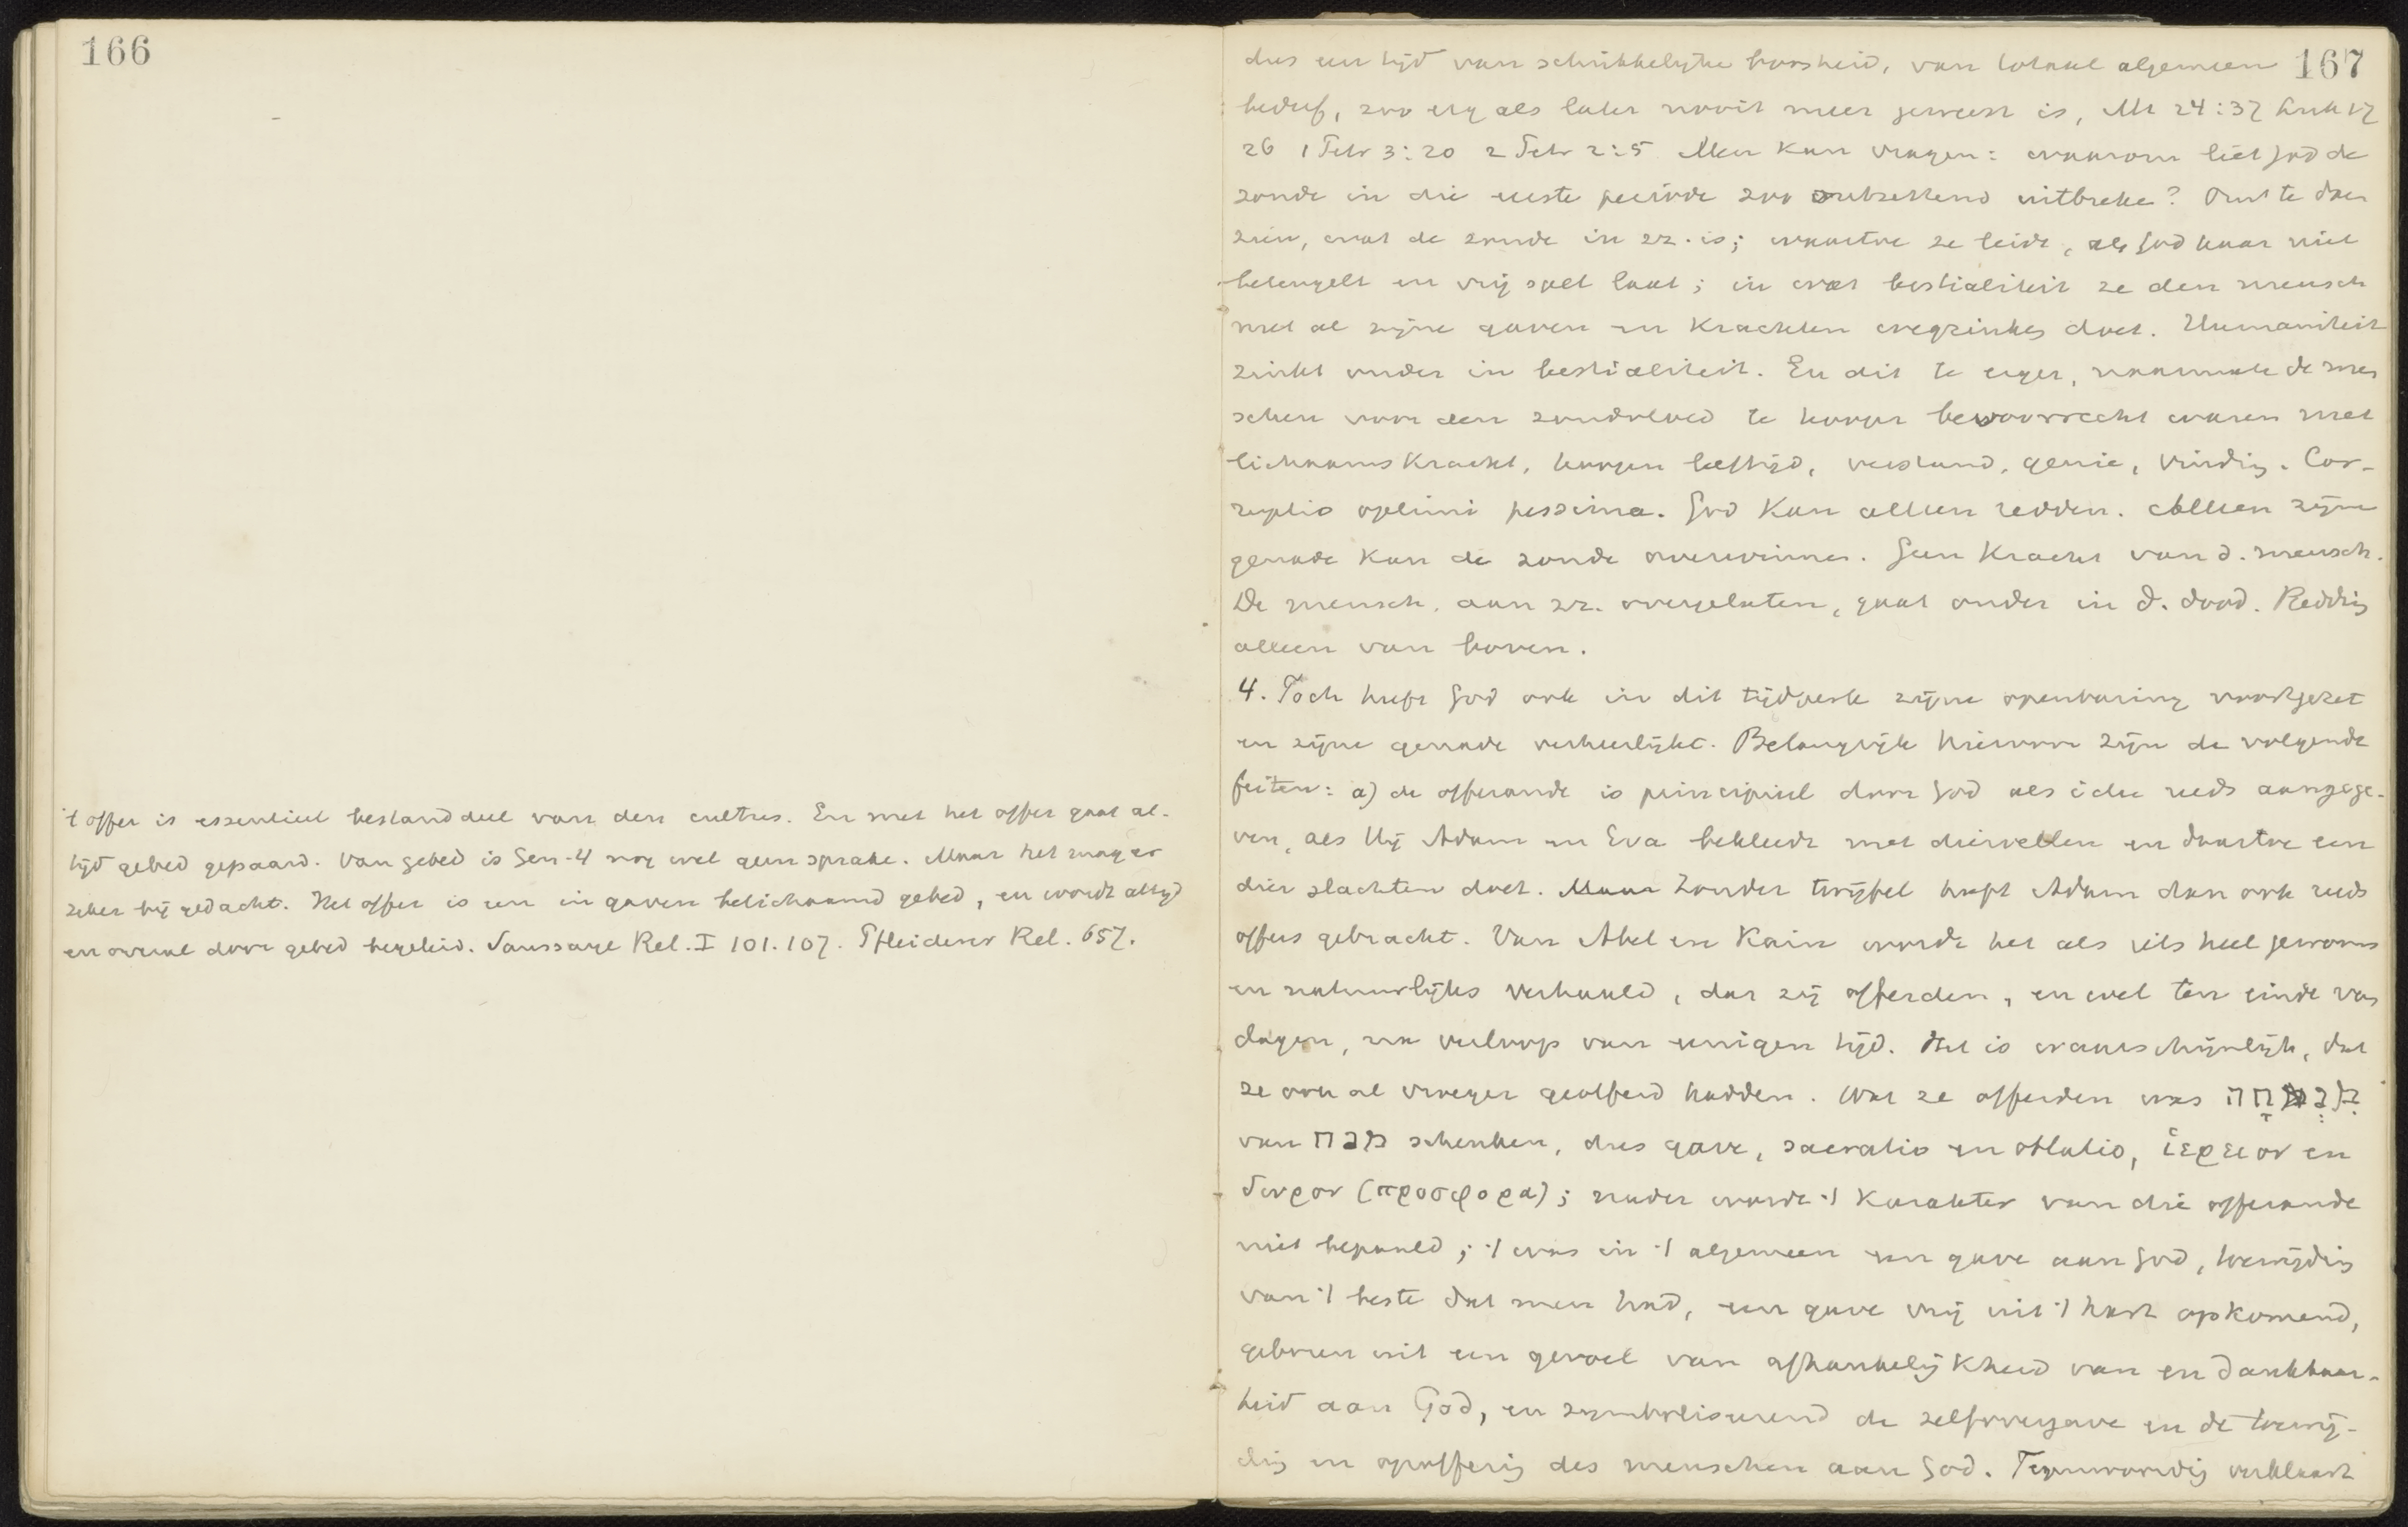 166
't offer is essentieel bestanddeel van den cultus. En met het offer gaat al-
tijd gebed gepaard. Van gebed is Gen. 4 nog wel geen sprake. Maar het mag er
zeker bij gedacht. Het offer is een in gaven belichaamd gebed, en wordt altijd
en overal door gebed begeleid. Saussaye Rel. I 101. 107. Pfleiderer Rel. 657.
167
dus een tijd van schrikkelijke boosheid, van totaal algemeen
bederf, zoo erg als later nooit meer geweest is, Mt 24:37 Luk 17
26 1 Petr 3:20 2 Petr 2:5 Men kan vragen: waarom liet God de
zonde in die eerste periode zoo ontzettend uitbreke? Om te doen
zien, wat de zonde in zz. is; waartoe ze leidt, als God haar niet
beteugelt en vrij spel laat; in wat bestialiteit ze den mensch
met al zijne gaven en krachten wegzinken doet. Humaniteit
zinkt onder in bestialiteit. En dit te erger, naarmate de men
schen voor den zondvloed te hooger bevoorrecht waren met
lichaamskracht, hoogen leeftijd, verstand, genie, vinding. Cor-
ruptio optimi pessima. God kan alleen redden. Alleen zijne
genade kan de zonde overwinnen. Geen kracht van d. mensch.
De mensch, aan zz. overgelaten, gaat onder in d. dood. Redding
alleen van boven.
4. Toch heeft God ook in dit tijdperk zijne openbaring voortgezet
en zijne genade verheerlijkt. Belangrijk hiervoor zijn de volgende
feiten: a) de offerande is principieel door God als idee reeds aangege-
ven, als Hij Adam en Eva bekleedt met diervellen en daartoe een
dier slachten doet. Maar Zonder twijfel heeft Adam dan ook reeds
offers gebracht. Van Abel en Kain wordt het als iets heel gewoons
en natuurlijks verhaald, dat zij offerden, en wel ten einde van
dagen, na verloop van eenigen tijd. Het is waarschijnlijk, dat
ze ook al vroeger geofferd hadden. Wat ze offerden was מנחה
van מנח schenken, dus gave, sacratio en oblatio, ἱερειον en
δωρον (προσφορα); nader wordt 't karakter van die offerande
niet bepaald; 't was in 't algemeen een gave aan God, toewijding
van 't beste dat men had, een gave vrij uit 't hart opkomend,
geboren uit een gevoel van afhankelijkheid van en dankbaar-
heid aan God, en symboliseerend de zelfovergave en de toewij-
ding en opoffering des menschen aan God. Tegenwoordig verklaart